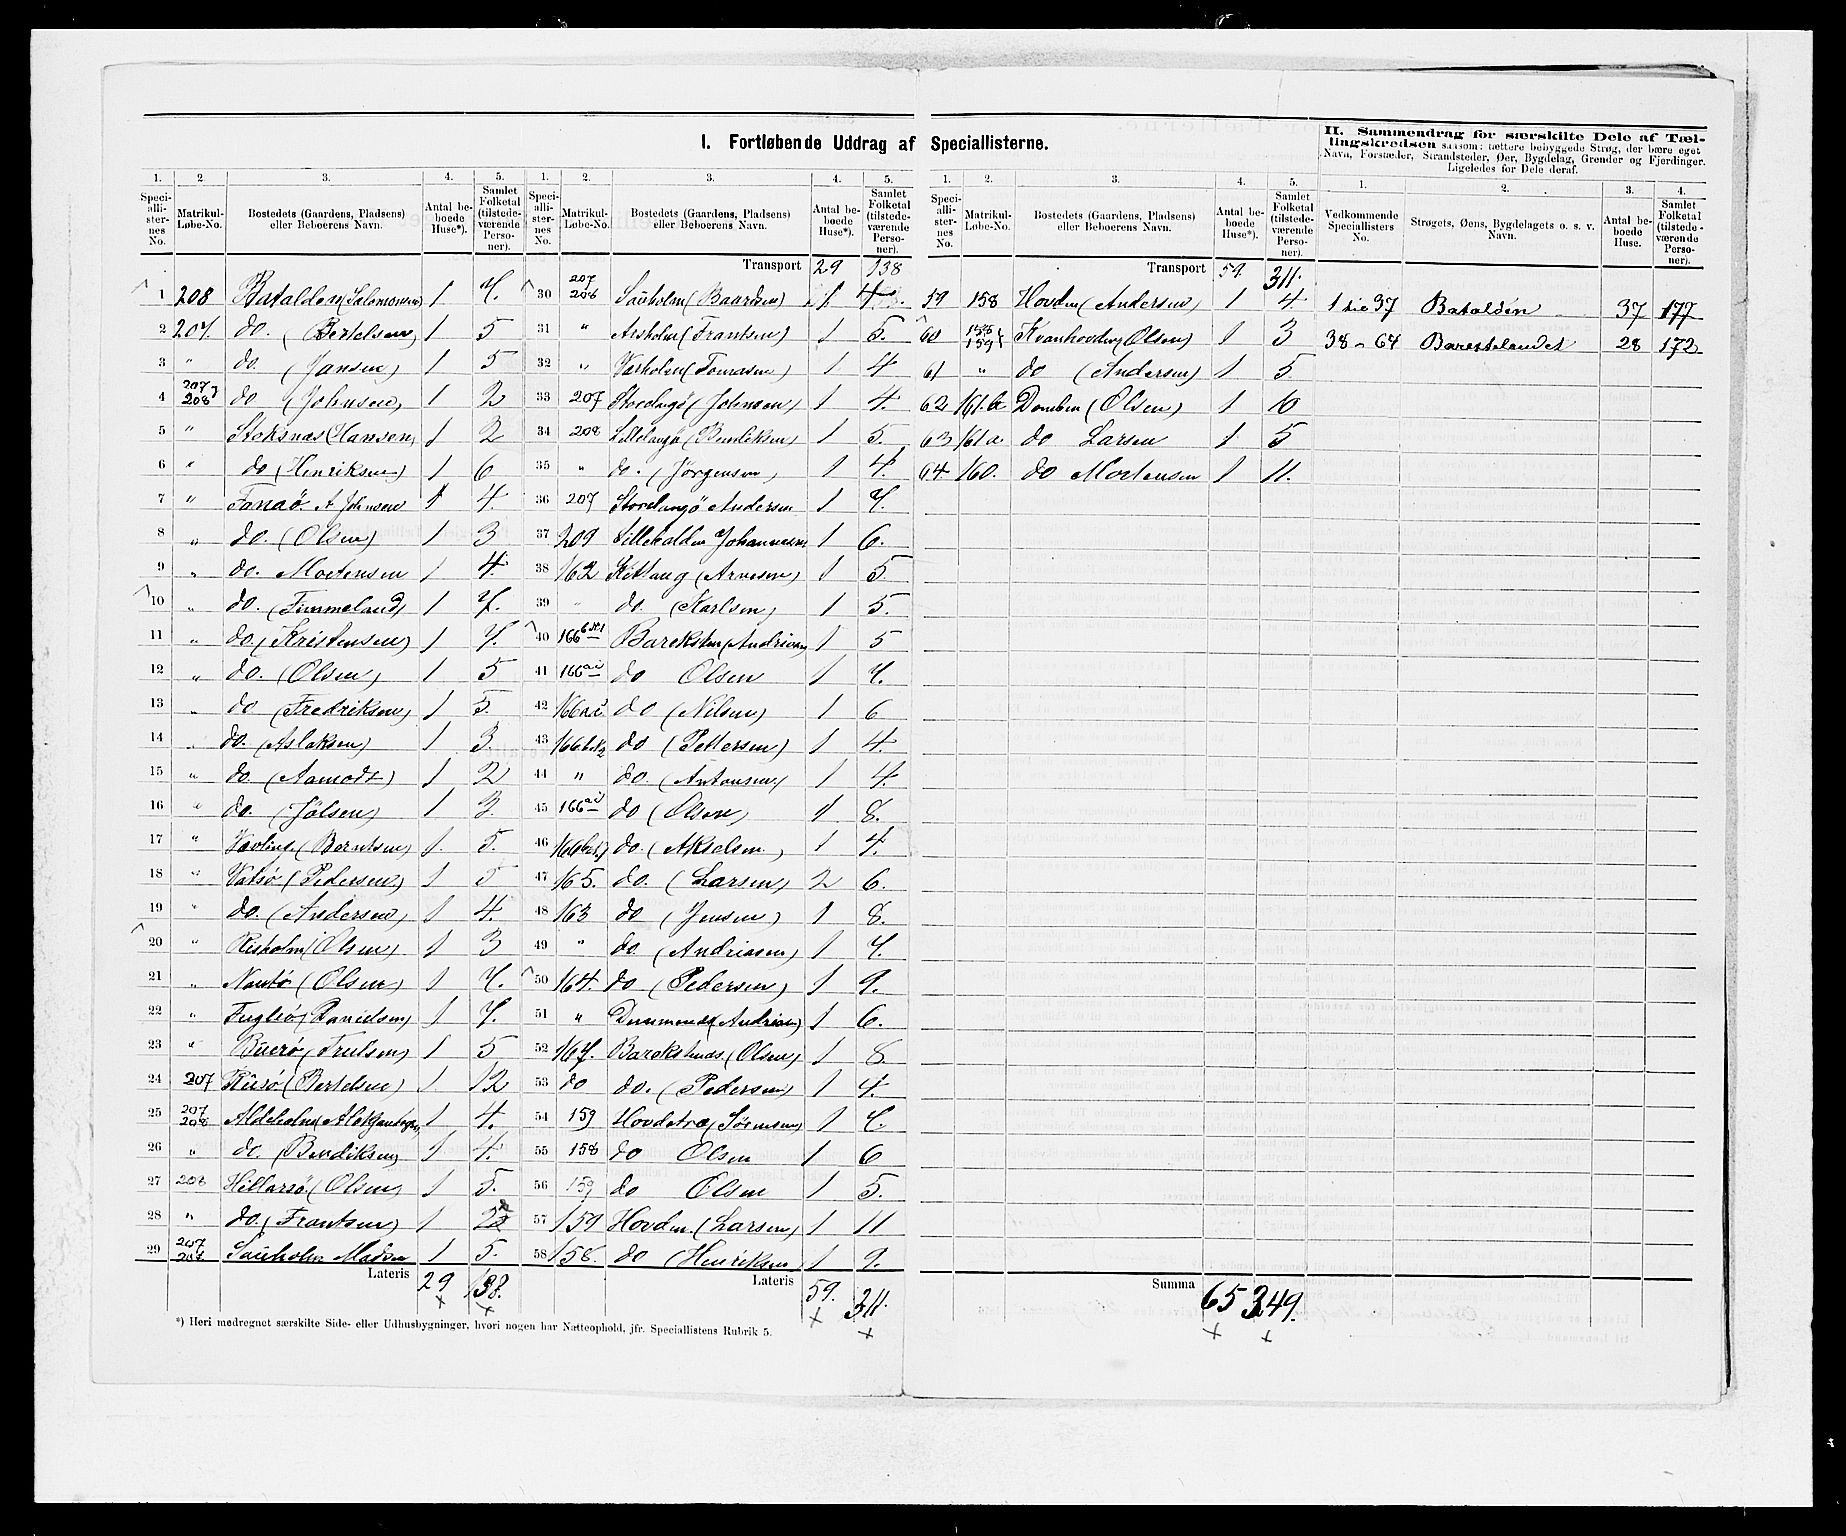 I. Fortløbende Uddrag af Speciallisterne.
1. 2. 3. 4. 5.
Speciallisternes No. Matrikul-Løbe-No. Bostedets (Gaardens, Pladsens) eller Beboerens Navn. Antal beboede Huse*). Samlet Folketal (tilstedeværende Personer).
1 208 Bataldøn (Salomonsen) 1 7.
2 207. do. (Bertelsen) 1 5
3 " do. (Jansen) 1 5
4 207 208 do (Johnsen) 1 2
5 " Stoksnæs (Hansen) 1 2
6 " do (Henriksen) 1 6
7 " Fanaö. A Johnsen 1 4.
8 " do. (Olsen) 1 3
9 " do. Mortensen 1 4.
10 " do. (Fimmeland) 1 7.
11 " do (Kristensen) 1 7.
12 " do. (Olsen) 1 5
13 " do (Fredriksen) 1 5.
14 " do. (Aslaksen) 1 3.
15 " do. (Aamodt) 1 2
16 " do. (Jølsen) 1 3.
17 " (Berntsen) 1. 5.
18 " Vatsö (Pedersen) 1 5
19 " do. (Andersen) 1 4.
20 " Risholm (Olsen) 1 3
21 " (Olsen) 1 7.
22 " (Danielsen) 1 7.
23 " Buerö (Trulsen) 1 5
24 207 (Bertelsen) 1. 12
25 207 208 Aldeholm 1 4.
26 " do. (Bendiksen) 1 4.
27 208 Hillersö (Olsen) 1 5.
28 " do. (Frantsen) 1 2
29 207 208 Sauholm Madsen 1 5.
Lateris 29 138.
*) Heri medregnet særskilte Side- eller Udhusbygninger, hvori nogen har Natteophold, jfr. Speciallistens Rubrik 5.
1. 2. 3. 4. 5.
Speciallisternes No. Matrikul-Løbe-No. Bostedets (Gaardens, Pladsens) eller Beboerens Navn. Antal beboede Huse*). Samlet Folketal (tilstedeværende Personer).
Transport 29 138
30 207 208 Sauholm (Baardsen) 1 4.
31 " Arsholm (Frantsen) 1 5.
32 " Værholm (Tomasen) 1 4
33 207 Storelangö (Johnsen) 1 4.
34 208 Lillelangö (Bendiksen) 1 5.
35 " do. (Jörgensen) 1 4.
36 207 Storelangö Andersen 1 7.
37 209 Lillebalden Johannesen 1 6.
38 162 Kittang (Arnesen) 1 5.
39 " do. (Karlsen) 1 5.
40 166 Bareksten (Andriasen) 1 5
41 166 do Olsen 1 7.
42 166 do (Nilsen) 1 6
43 166 do (Pettersen) 1 4.
44 " do. (Antonsen) 1 4.
45 166 do (Olsen) 1 8.
46 166 do. (Akselsen) 1 4.
47 165. do. (Larsen) 2 6.
48 163 do (Jensen) 1 8.
49 " do. (Andriasen) 1 7.
50 164. do (Pedersen) 1 9.
51 " (Andriasen) 1 6.
52 167. Barekstnæs (Olsen) 1 8.
53 do do. (Pedersen) 1 4.
54 159 Hovdetræ (Sörensen) 1 7.
55 158 do Olsen 1 6
56 159 do Olsen 1 5.
57 159 Hovden (Larsen) 1 11
58 158. do (Henriksen) 1 9.
Lateris 59. 311.
1. 2. 3. 4. 5.
Speciallisternes No. Matrikul-Løbe-No. Bostedets (Gaardens, Pladsens) eller Beboerens Navn. Antal beboede Huse*). Samlet Folketal (tilstedeværende Personer).
Transport 59. 311.
59 158 Hovden (Andersen) 1 4
60 159 Kvanhovden (Olsen) 1 3
61 " do (Andersen) 1 5
62 161.b Domben (Olsen) 1 10
63 161a. do Larsen 1 5
64. 160. do Mortensen 1 11.
Summa 65 349.
II. Sammendrag for særskilte Dele af Tællingskredsen saasom: tættere bebyggede Strøg, der bære eget Navn, Forstæder, Strandsteder, Øer, Bygdelag, Grender og Fjerdinger. Ligeledes for Dele deraf.
1. 2. 3. 4.
Vedkommende Speciallisters No. Strøgets, Øens, Bygdelagets o. s. v. Navn. Antal beboede Huse. Samlet Folketal (tilstedeværende Personer).
1 til 37 Bataldön 37 177
38 - 64 Barestelandet 28 172